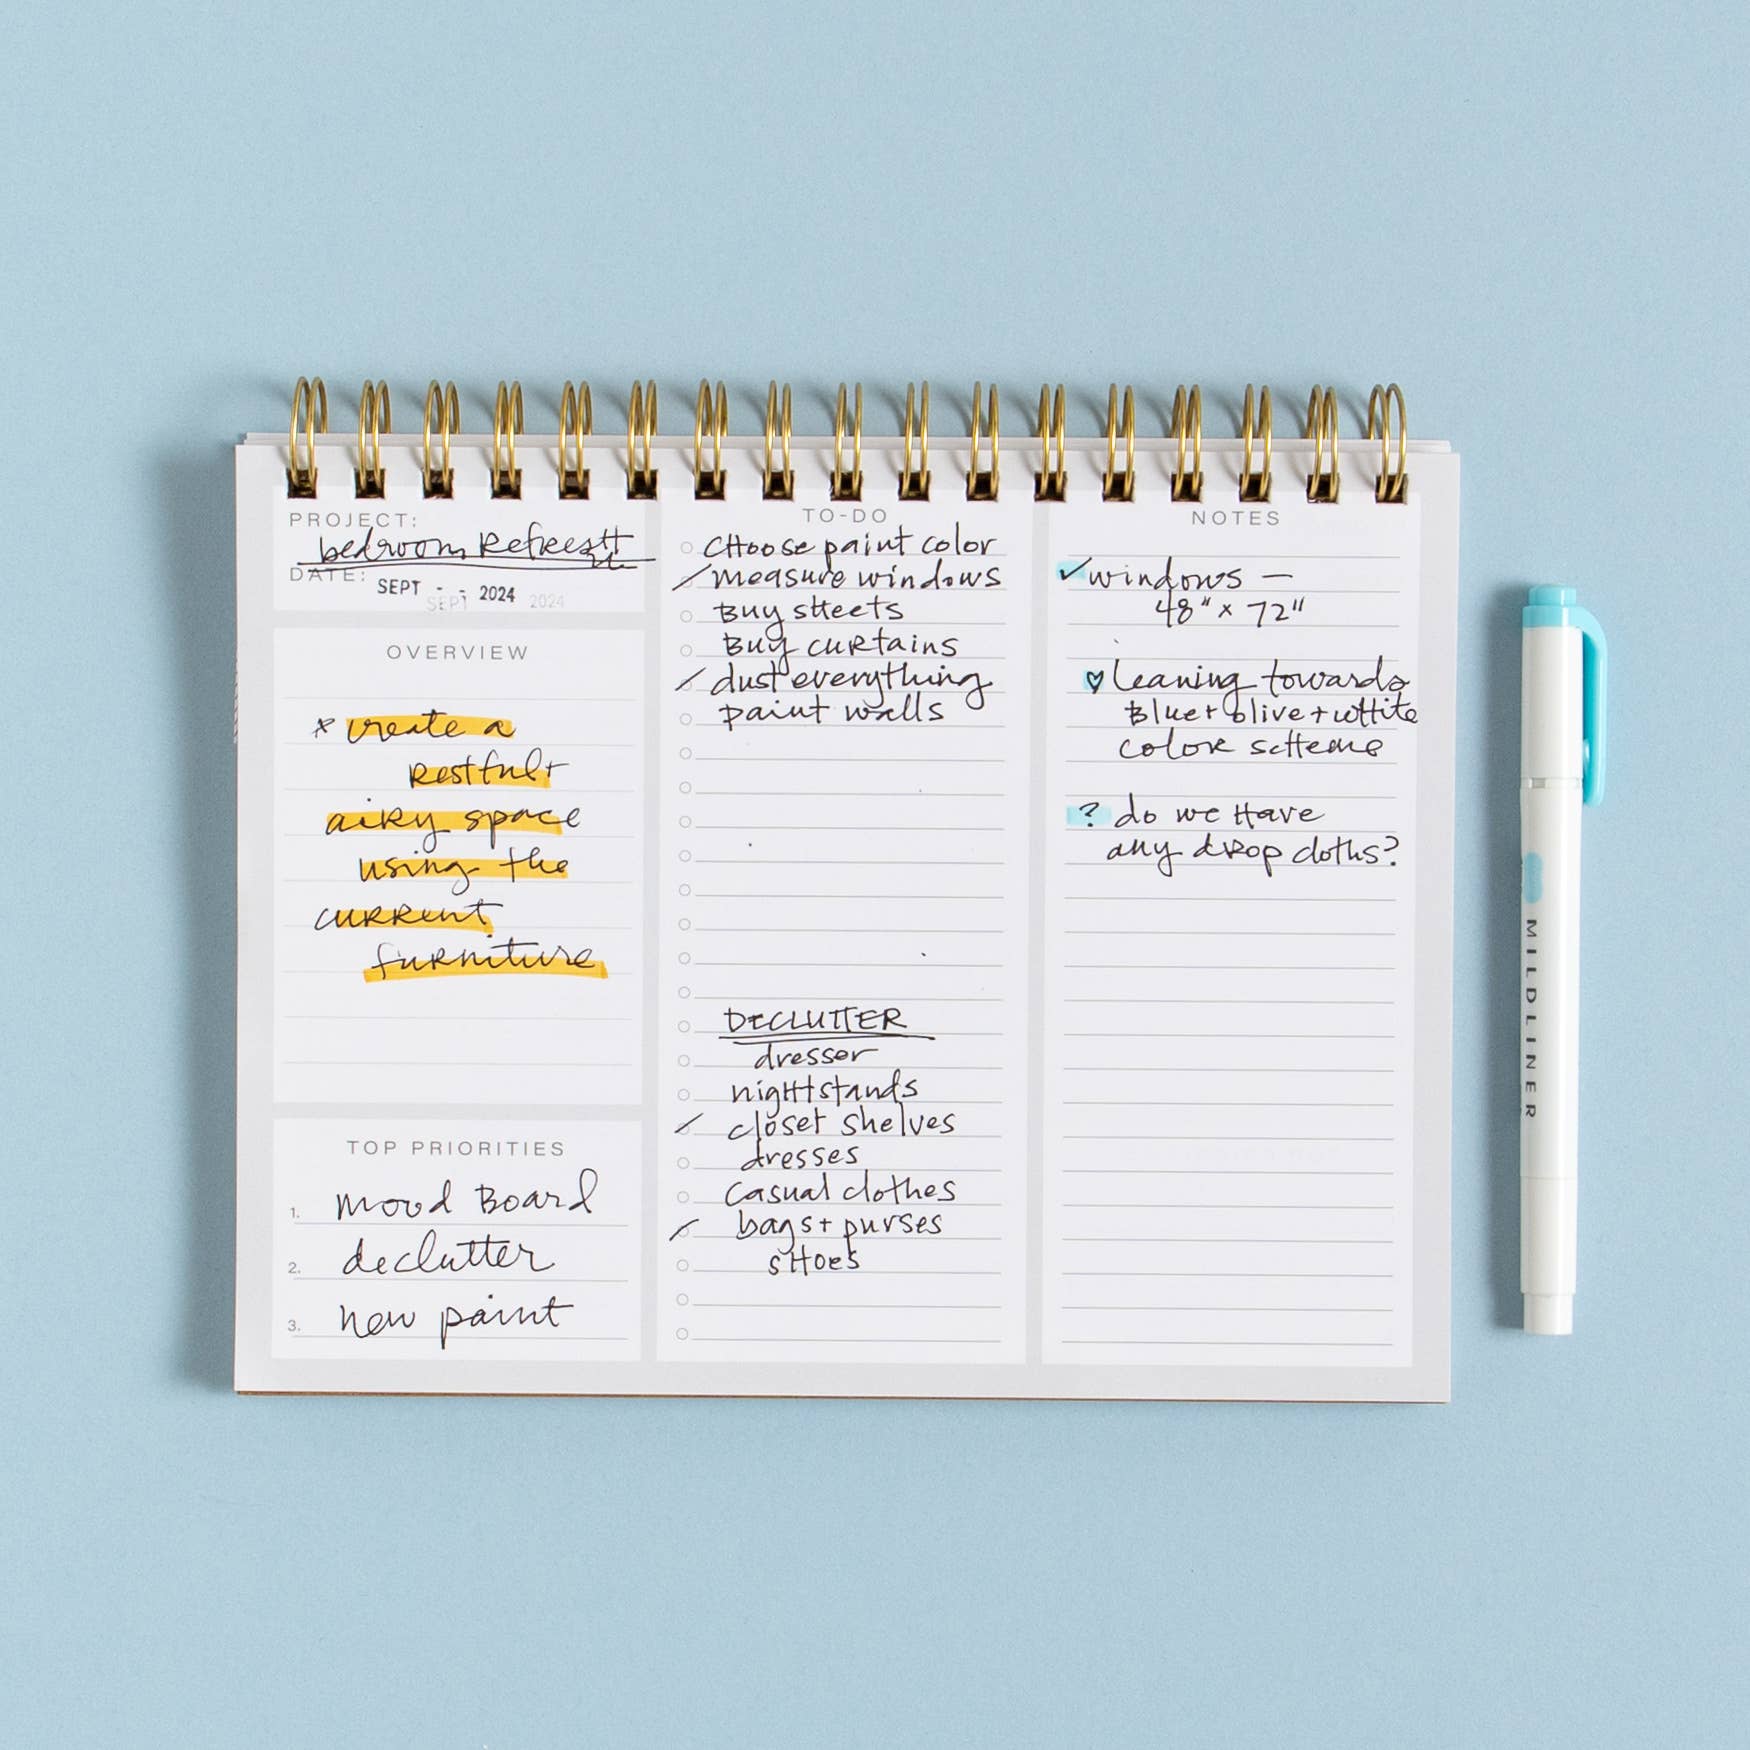 PROJECT:
bedroom Refresh
DATE: SEPT - - 2024
SEPT 2024
OVERVIEW
* create a
restful +
airy space
using the
current
furniture
TOP PRIORITIES
1. mood Board
2. declutter
3. new paint
TO-DO
Choose paint color
measure windows
Buy sheets
Buy curtains
dust everything
paint walls
DECLUTTER
dresser
nightstands
closet shelves
dresses
casual clothes
bags + purses
shoes
NOTES
✓ windows —
48" x 72"
♡ leaning towards
Blue + olive + white
color scheme
? do we have
any drop cloths?
MILDLINER